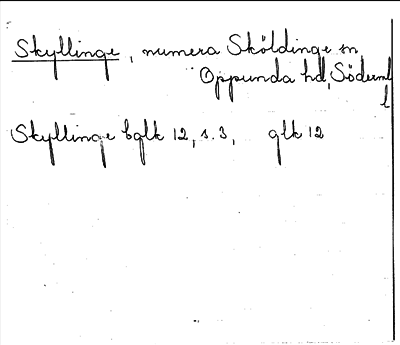 Skyllinge, numera Sköldinge sn
Oppunda hd, Söderml
l
Skyllinge bglk 12, s. 3, glk 12